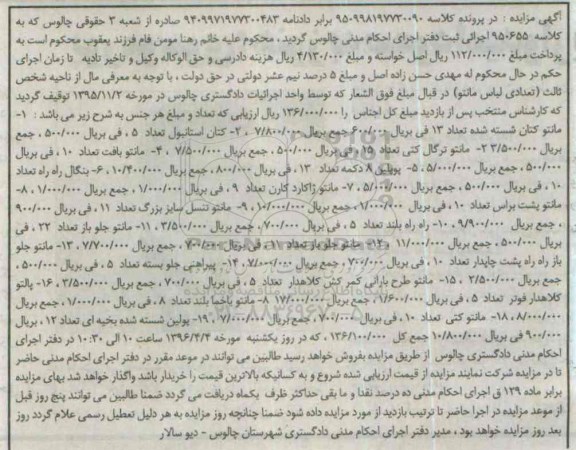 آگهی مزایده : در پرونده کلاسه ۹۵۰۹۹۸۱۹۷۷۳۰۰۰۹۰ برابر دادنامه ۹۴۰۹۹۷۱۹۷۷۳۰۰۴۸۳ صادره از شعبه ۳ حقوقی چالوس که به
کلاسه ۹۵۰۶۵۵ اجرائی ثبت دفتر اجرای احکام مدنی چالوس گردید ، محکوم علیه خانم رهنا مومن فام فرزند یعقوب محکوم است به
پرداخت مبلغ ۱۱۲/۰۰۰/۰۰۰ ریال اصل خواسته و مبلغ ۴/۱۳۰/۰۰۰ ریال هزینه دادرسی و حق الوکاله وکیل و تاخیر تادیه تا زمان اجرای
حکم در حال محکوم له مهدی حسن زاده اصل و مبلغ ۵ درصد نیم عشر دولتی در حق دولت ، با توجه به معرفی مال از ناحیه شخص
ثالث (تعدادی لباس مانتو) در قبال مبلغ فوق الشعار که توسط واحد اجرائیات دادگستری چالوس در مورخه ۱۳۹۵/۱۱/۲ توقیف گردید
که کارشناس منتخب پس از بازدید مبلغ کل اجناس را ۱۳۶/۰۰۰/۰۰۰ ریال ارزیابی که تعداد و مبلغ هر جنس به شرح زیر می باشد : ۱-
مانتو کتان شسته شده تعداد ۱۳ فی بریال ۶۰۰/۰۰۰ جمع بریال ۷/۸۰۰/۰۰۰ ، ۲- کتان استانبول تعداد ۵ ، فی بریال ۵۰۰/۰۰۰ ، جمع
بریال ۳/۵۰۰/۰۰۰ ۲- مانتو ترگال کتی تعداد ۱۵ ، فی بریال ۵۰۰/۰۰۰ ، جمع بریال ۷/۵۰۰/۰۰۰ ، ۴- مانتو بافت تعداد ۱۰ ، فی بریال
۵۰۰/۰۰۰ ، جمع بریال ۵/۰۰۰/۰۰۰ ، ۵- پوپلین ۸ دکمه تعداد ۱۳ ، فی بریال ۸۰۰/۰۰۰ ، جمع بریال ۱۰/۴۰۰/۰۰۰ ، ۶- بنگال راه راه تعداد
۱۰ ، فی بریال ۵۰۰/۰۰۰ ، جمع بریال ۵/۰۰۰/۰۰۰ ، ۷- مانتو ژاکارد کارن تعداد ۹ ، فی بریال ۱/۰۰۰/۰۰۰ ، جمع بریال ۱/۰۰۰/۰۰۰ ، ۸-
مانتو پشت براس تعداد ۱۰ ، فی بریال ۱/۰۰۰/۰۰۰ ، جمع بریال ۱۰/۰۰۰/۰۰۰ ، ۹- مانتو تنسل سایز بزرگ تعداد ۱۱ ، فی بریال ۹۰۰/۰۰۰
، جمع بریال ۹/۹۰۰/۰۰۰ ، ۱۰- راه راه بلند تعداد ۵ ، فی بریال ۷۰۰/۰۰۰ ، جمع بریال ۳/۵۰۰/۰۰۰ ، ۱۱- مانتو جلو باز تعداد ۲۲ ، فی
بریال ۵۰۰/۰۰۰ ، جمع بریال ۱۱/۰۰۰/۰۰۰ ، ۱۲- مانتو جلو باز تعداد ۱۱ ، فی بریال ۷۰۰/۰۰۰ ، جمع بریال ۷/۷۰۰/۰۰۰ ، ۱۳- مانتو جلو
باز راه راه پشت چاپدار تعداد ۱۰ ، فی بریال ۷۰۰/۰۰۰ ، جمع بریال ۷/۰۰۰/۰۰۰ ، ۱۴- پیراهنی جلو بسته تعداد ۵ ، فی بریال ۵۰۰/۰۰۰ ،
جمع بریال ۲/۵۰۰/۰۰۰ ، ۱۵- مانتو طرح بارانی کمر کش کلاهدار تعداد ۵ ، فی بریال ۷۰۰/۰۰۰ ، جمع بریال ۳/۵۰۰/۰۰۰ ، ۱۶- پالتو
کلاهدار فوتر تعداد ۵ ، فی بریال ۱/۶۰۰/۰۰۰ ، جمع بریال ۱۷/۰۰۰/۰۰۰ ۸- مانتو باخما بلند تعداد ۸ ، فی بریال ۱/۰۰۰/۰۰۰ ، جمع بریال
۸/۰۰۰/۰۰۰ ، ۱۸- مانتو کتی تعداد ۱۰ ، فی بریال ۷۰۰/۰۰۰ ، جمع بریال ۷/۰۰۰/۰۰۰ ، ۱۹- پولین شسته شده بخیه ای تعداد ۱۲ ، بریال
۹۰۰/۰۰۰ فی بریال ۱۰/۸۰۰/۰۰۰ جمع کل ۱۳۶/۱۰۰/۰۰۰ ، که در روز یکشنبه مورخه ۱۳۹۶/۴/۴ ساعت ۱۰ الی ۱۰:۳۰ در دفتر اجرای
احکام مدنی دادگستری چالوس از طریق مزایده بفروش خواهد رسید طالبین می توانند در موعد مقرر در دفتر اجرای احکام مدنی حاضر
تا در مزایده شرکت نمایند مزایده از قیمت ارزیابی شده شروع و به کسانیکه بالاترین قیمت را خریدار باشد واگذار خواهد شد بهای مزایده
برابر ماده ۱۲۹ ق اجرای احکام مدنی ده درصد نقدا و ما بقی حداکثر ظرف یکماه دریافت می گردد ضمنا طالبین می توانند پنج روز قبل
از موعد مزایده در اجرا حاضر تا ترتیب بازدید از مورد مزایده داده شود ضمنا چنانچه روز مزایده به هر دلیل تعطیل رسمی علام گردد روز
بعد روز مزایده خواهد بود ، مدیر دفتر اجرای احکام مدنی دادگستری شهرستان چالوس - دیو سالار